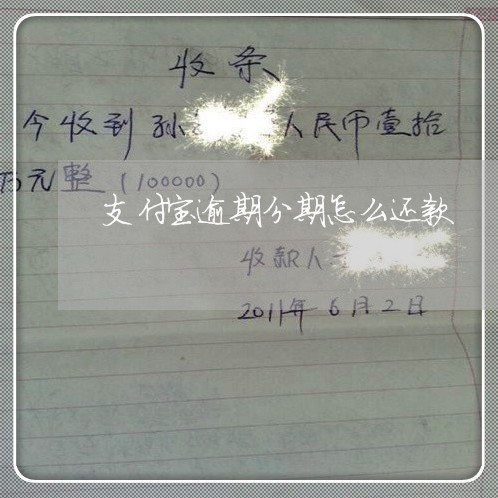 收条
今收到孙 人民币壹拾
万元整(100000)
支付宝逾期分期怎么还款
收款人
2011年6月2日